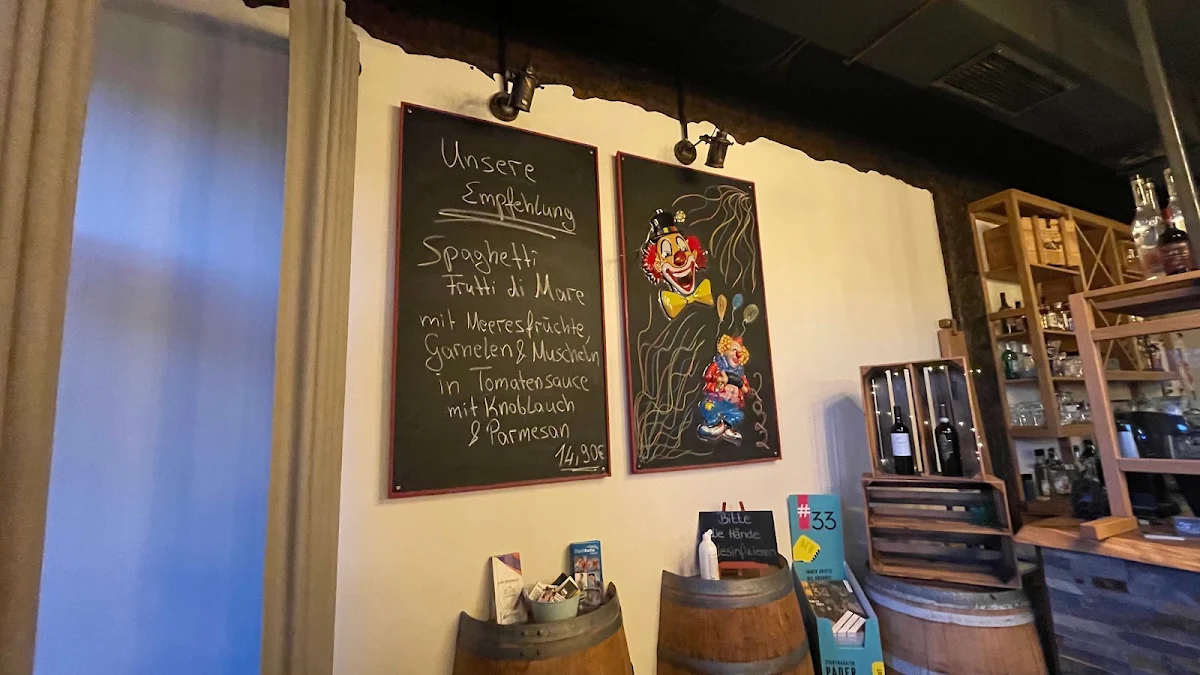 Unsere
Empfehlung
Spaghetti
Frutti di Mare
mit Meeresfrüchte,
Garnelen & Muscheln
in Tomatensauce
mit Knoblauch
& Parmesan
14,90€
Bitte
die Hände
desinfizieren
#33
PADER